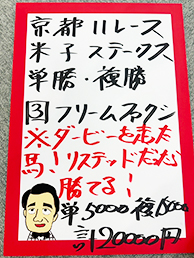 京都11レース
米子ステークス
単勝・複勝
③フリームファクシ
※ダービーを走た
馬!リステッドだたら
勝てる!
単5000 複15000
計20000円